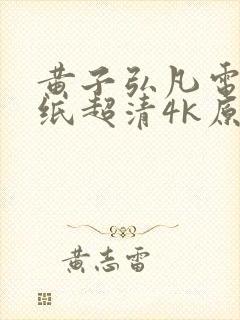 黄子弘凡雷
纸超清4k原
黄志雷